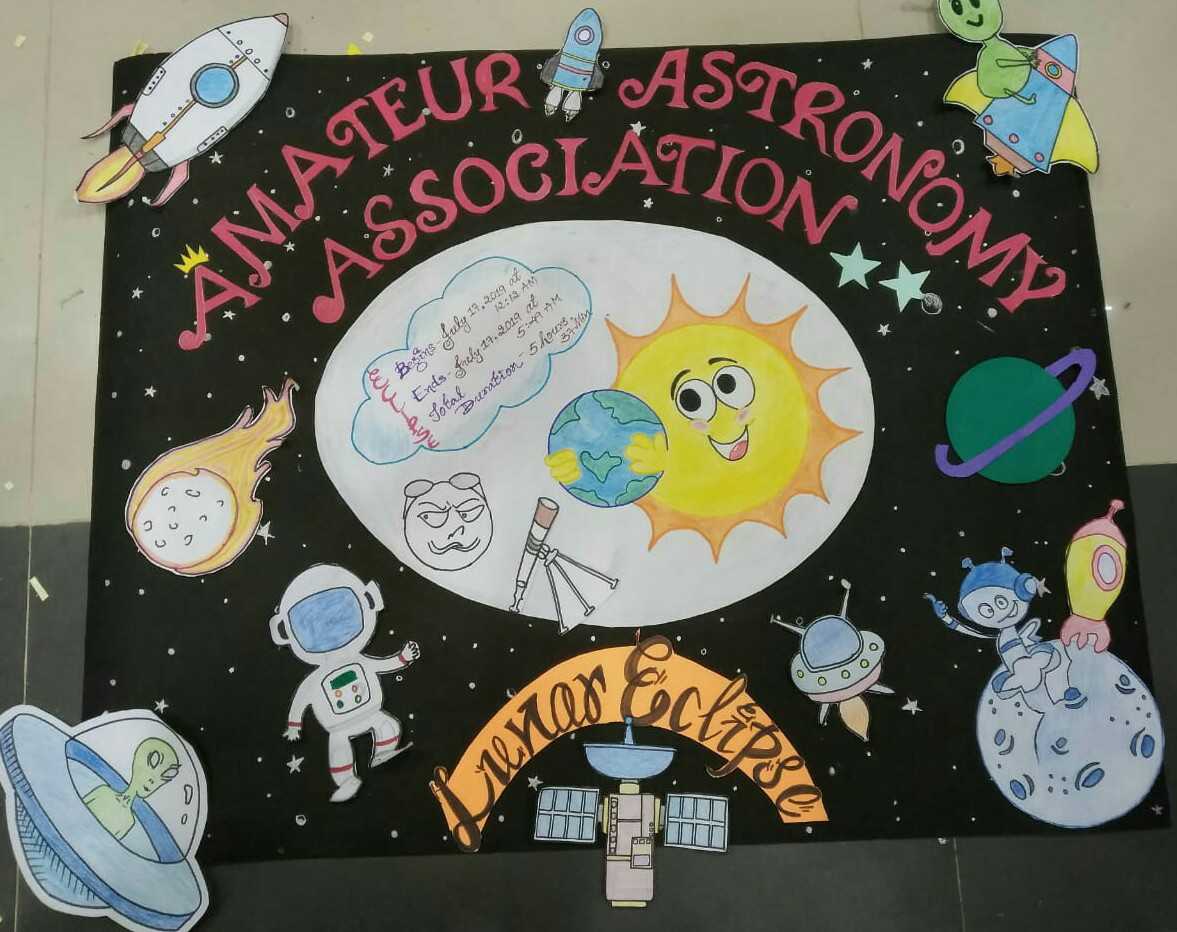 AMATEUR ASTRONOMY
ASSOCIATION
Begins - July 17, 2019 at
12:12 AM
Ends - July 17, 2019 at
5:49 AM
Total Duration - 5 hours
37 Min
Lunar Eclipse